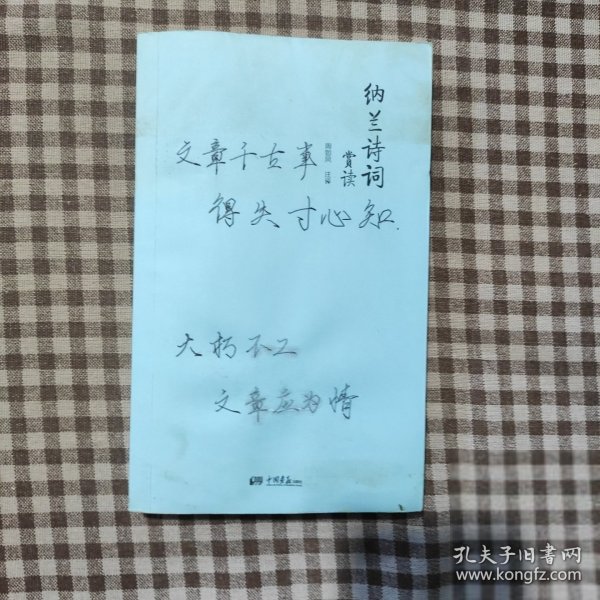 纳兰诗词
赏读
文章千古事
得失寸心知.
大朽不工
文章应为情
中国画报
孔夫子旧书网
www.kongfz.com